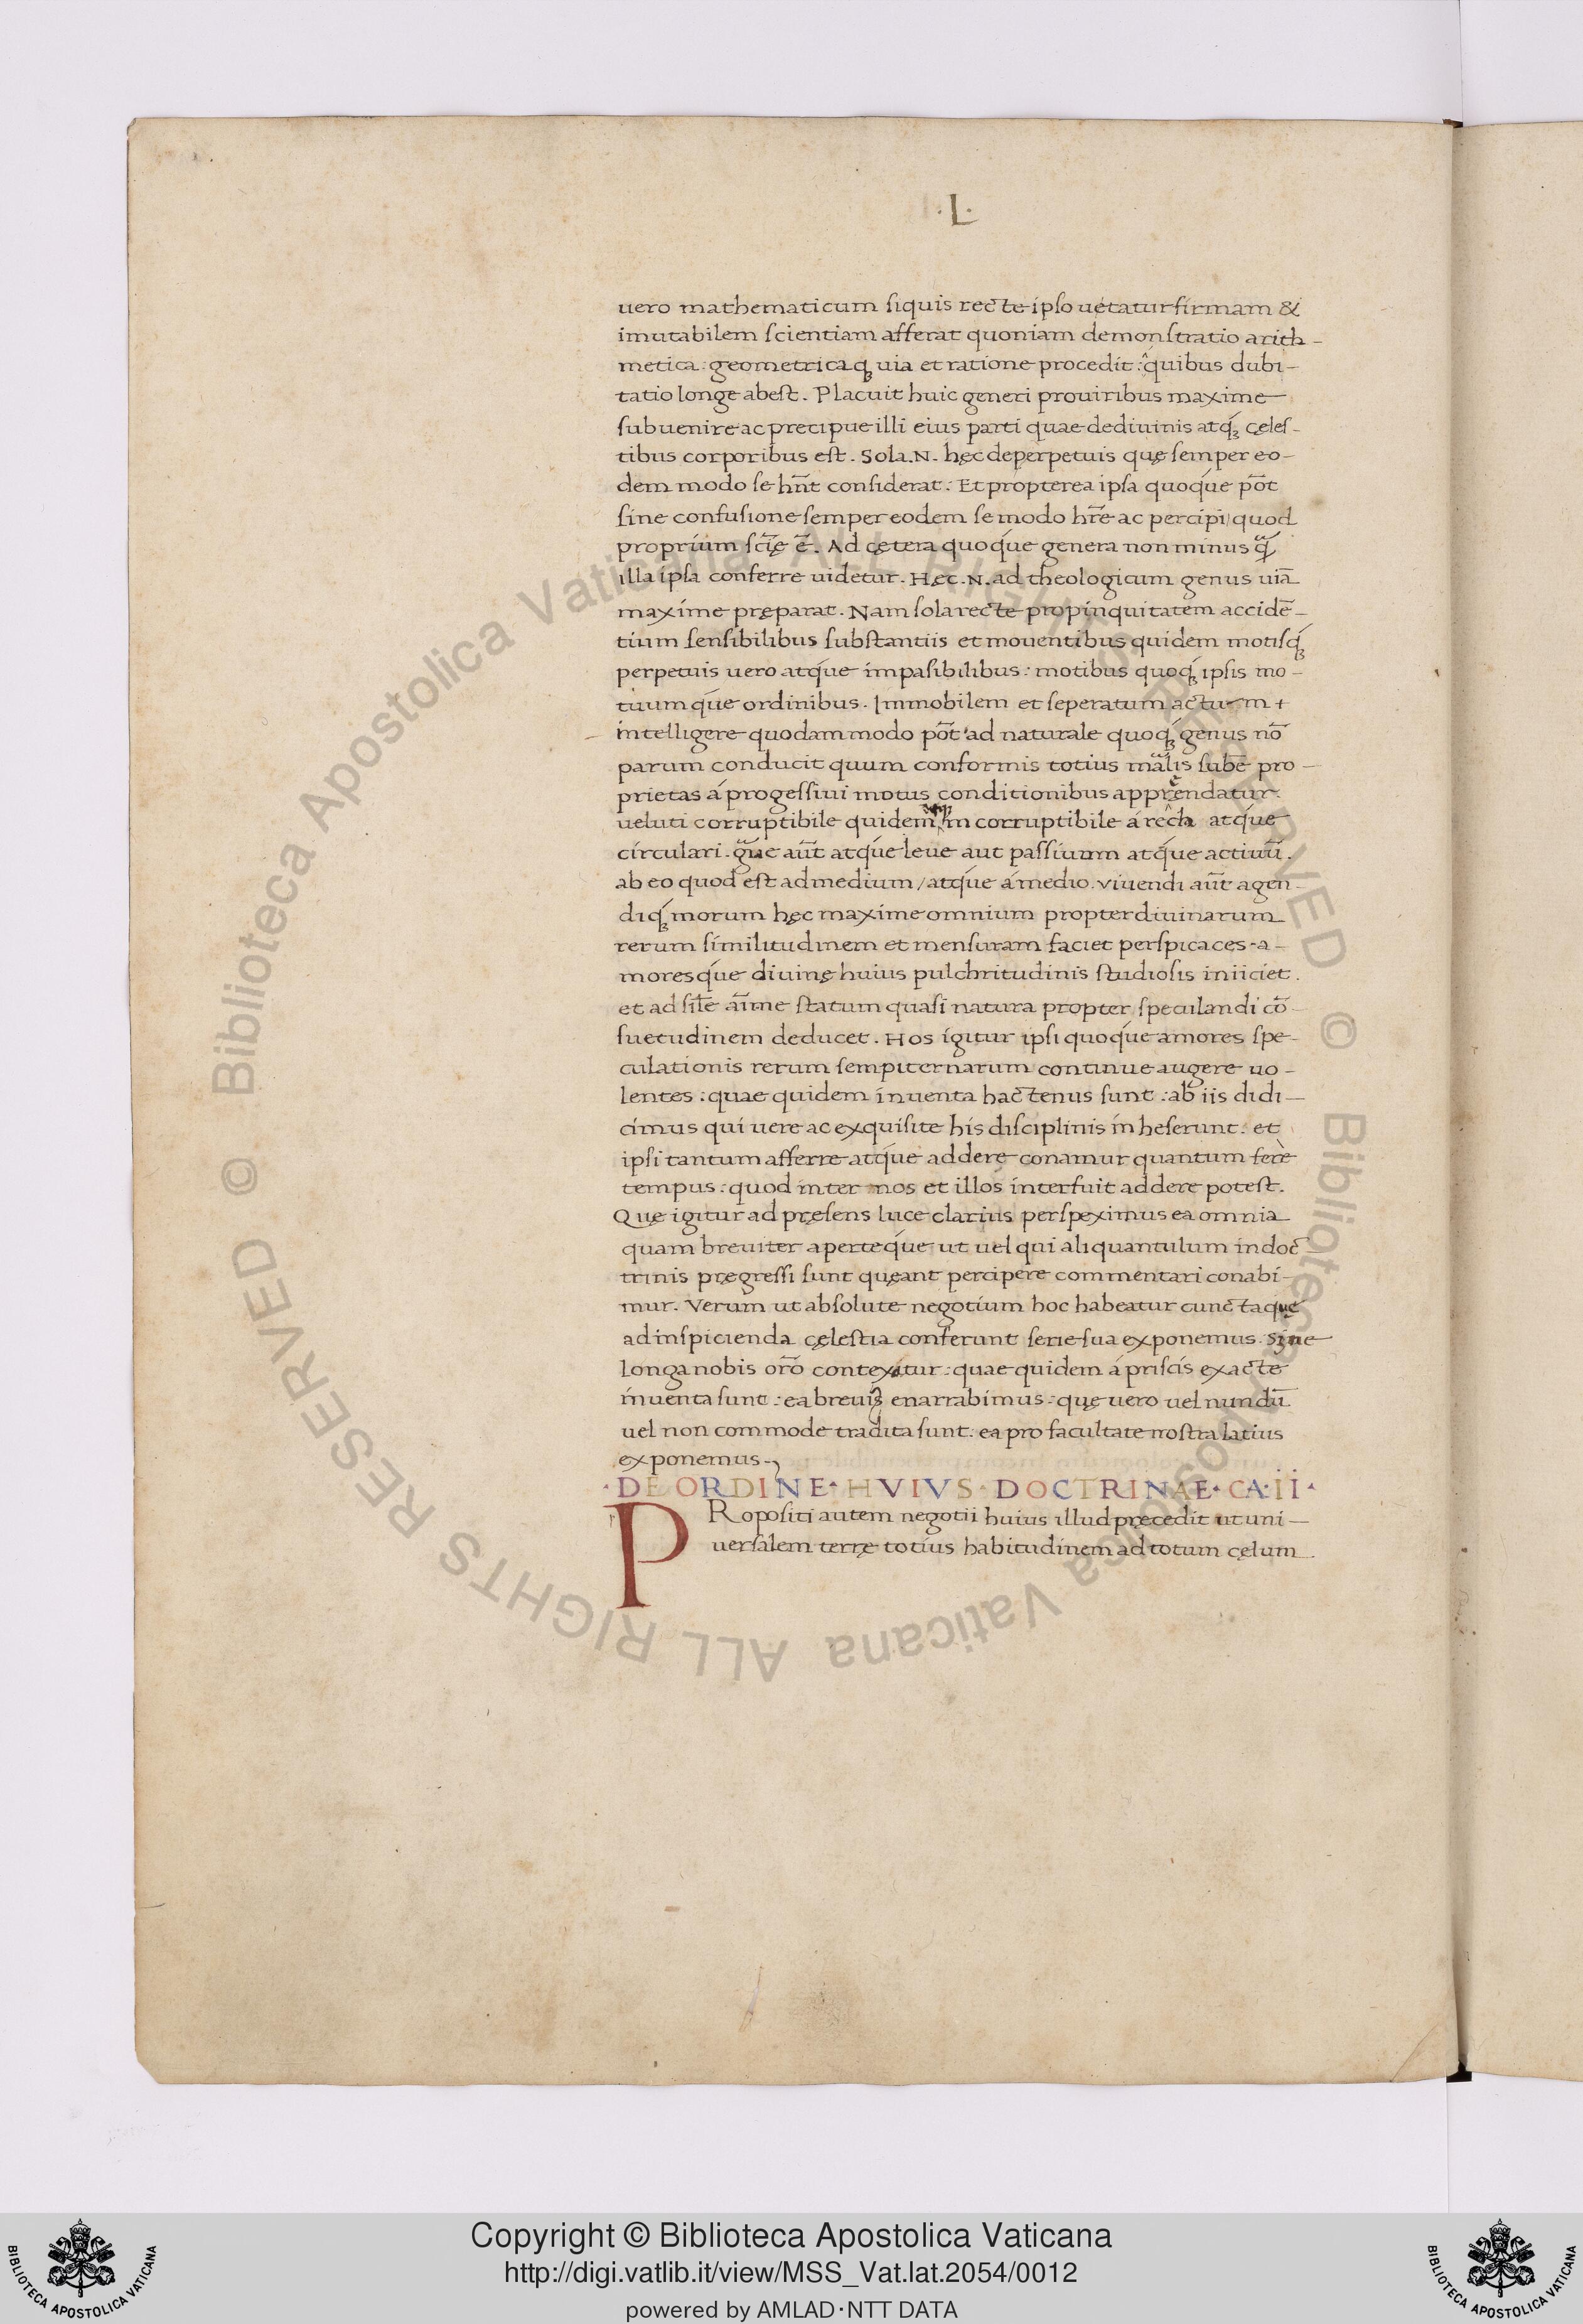 ·L·
uero mathematicum siquis recte ipso uetatur firmam &
imutabilem scientiam afferat quoniam demonstratio arith-
metica: geometricaqꝫ uia et ratione procedit: quibus dubi-
tatio longe abest. Placuit huic generi prouiribus maxime
subuenire ac precipue illi eius parti quae dediuinis atqꝫ cęles-
tibus corporibus est. Sola .N. hęc deperpetuis quę semper eo-
dem modo se hn̄t considerat. Et propterea ipsa quoque pōt
sine confusione semper eodem se modo hr̄e ac percipi/ quod
proprium sci̅ę ē. Ad cętera quoque genera non minus
illa ipsa conferre uidetur. Hęc .N. ad theologicum genus uiā
maxime pręparat. Nam sola recte propinquitatem accidē-
tium sensibilibus substantiis et mouentibus quidem motisqꝫ
perpetuis uero atque impasibilibus: motibus quoqꝫ ipsis mo-
tuumque ordinibus. Immobilem et seperatum actum +
intelligere quodammodo pōt ad naturale quoqꝫ genus nō
parum conducit quum conformis totius māłis sube̅ pro-
prietas á progessiui motus conditionibus apprendatur.
ueluti corruptibile quidem in corruptibile á recta atque
circulari. gue aūt atque leue aut passiuum atque actiuū.
ab eo quod est admedium / atque ámedio. viuendi aūt agen-
diqꝫ morum hęc maxime omnium propter diuinarum
rerum similitudinem et mensuram faciet perspicaces. a-
moresque diuinę huius pulchritudinis studiosis iniiciet.
et ad sile̅ ai̅me statum quasi natura propter speculandi cō-
suetudinem deducet. Hos igitur ipsi quoque amores spe-
culationis rerum sempiternarum continue augere uo-
lentes: quae quidem inuenta hactenus sunt: ab iis didi-
cimus qui uere ac exquisite his disciplinis inheserunt. et
ipsi tantum afferre atque addere conamur quantum fere
tempus: quod inter nos et illos interfuit addere potest.
Quę igitur ad pręsens luce clarius perspeximus ea omnia
quam breuiter aperteque ut uel qui aliquantulum in doc-
trinis pręgressi sunt queant percipere commentari conabi-
mur. Verum ut absolute negotium hoc habeatur cunctaque
ad inspicienda cęlestia conferunt serie sua exponemus. Sine
longa nobis orō contexitur: quae quidem á priscis exacte
inuenta sunt: ea breuiꝫ enarrabimus: quę uero uel nundū
uel non commode tradita sunt. ea pro facultate nostra latius
exponemus.
·DE ORDINE· HVIVS· DOCTRINAE· CA·II·
PRopositi autem negotii huius illud pręcedit ut uni-
uersalem terrę totius habitudinem ad totum cęlum.
© Biblioteca Apostolica Vaticana ALL RIGHTS RESERVED © Biblioteca Apostolica Vaticana ALL RIGHTS RESERVED
Copyright © Biblioteca Apostolica Vaticana
http://digi.vatlib.it/view/MSS_Vat.lat.2054/0012
powered by AMLAD·NTT DATA
BIBLIOTECA APOSTOLICA VATICANA
BIBLIOTECA APOSTOLICA VATICANA